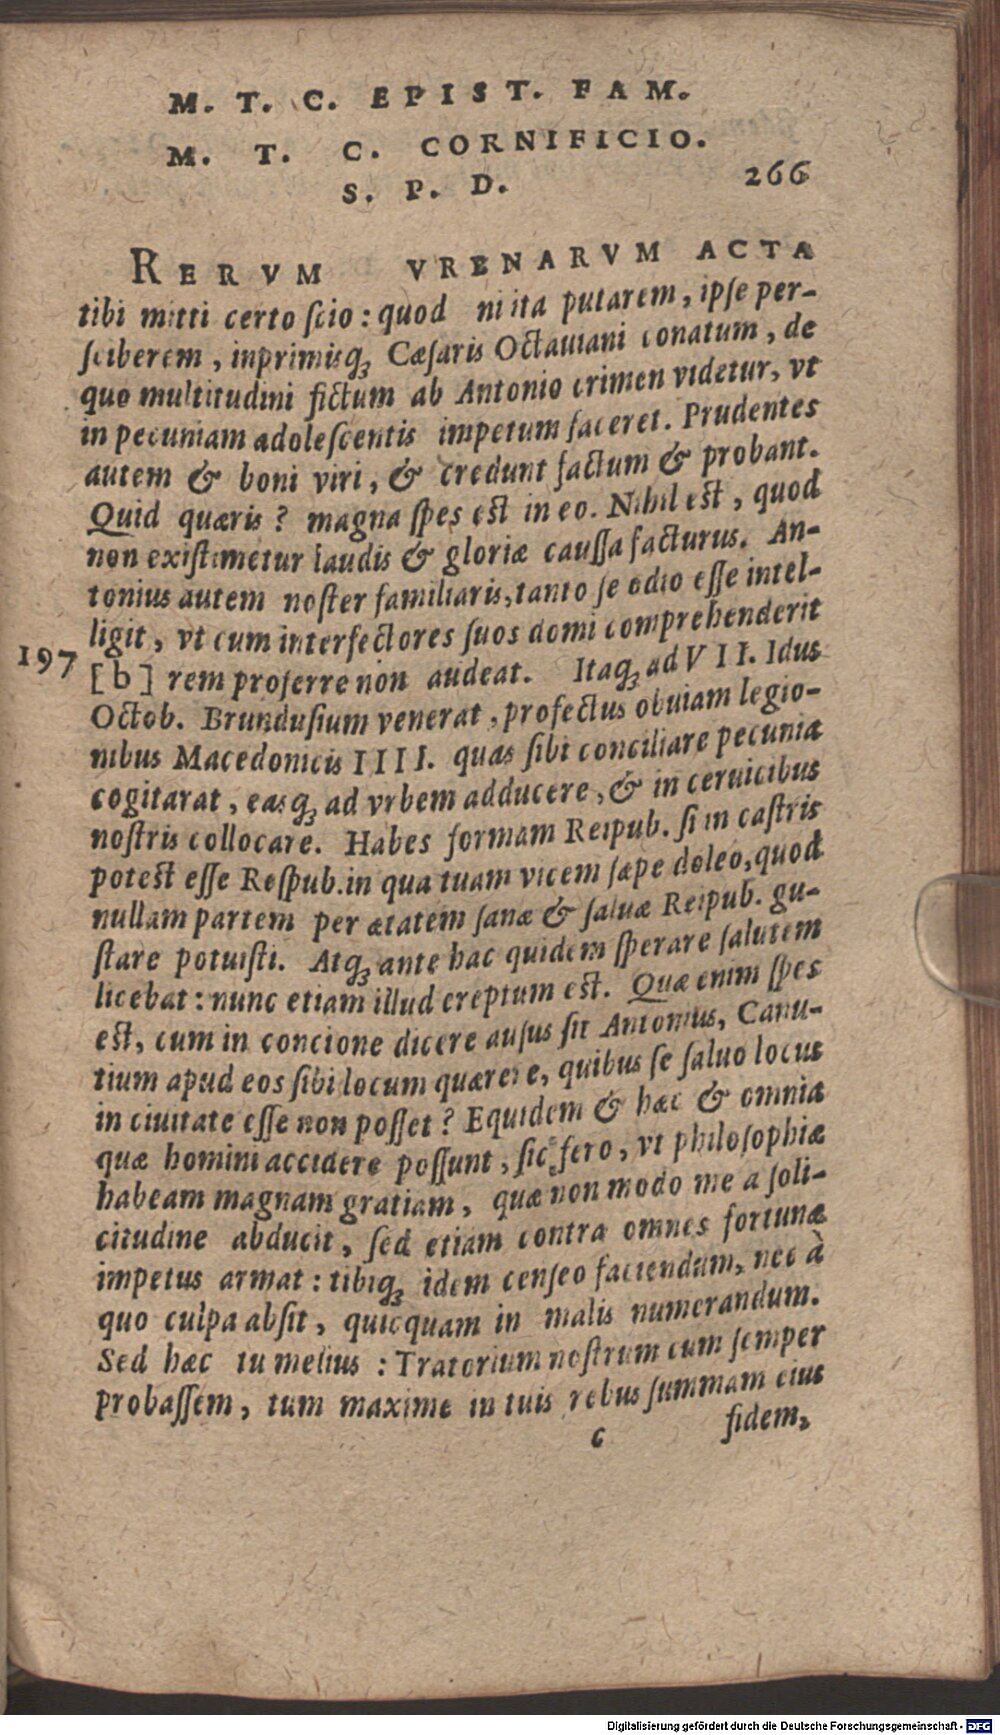 M. T. C. EPIST. FAM.
M. T. C. CORNIFICIO.
S. P. D. 266
RERVM VRBNARVM ACTA
tibi mitti certo ſcio: quod ni ita putarem, ipſe per-
ſciberem, inprimisq́; Cæſaris Octauiani conatum, de
quo multitudini fictum ab Antonio crimen videtur, vt
in pecuniam adoleſcentis impetum faceret. Prudentes
autem & boni viri, & credunt factum & probant.
Quid quæris? magna ſpes est in eo. Nihil eſt, quod
non exiſtimetur laudis & gloriæ cauſſa facturus. An-
tonius autem noſter familiaris, tanto ſe odio eſſe intel-
ligit, vt cum interfectores ſuos domi comprehenderit
197 [b] rem proferre non audeat. Itaq; ad VII. Idus
Octob. Brunduſium venerat, profectus obuiam legio-
nibus Macedonicis IIII. quas ſibi conciliare pecunia
cogitarat, easq; ad vrbem adducere, & in ceruicibus
noſtris collocare. Habes formam Reipub. ſi in caſtris
poteſt eſſe Reſpub. in qua tuam vicem ſæpe doleo, quod
nullam partem per ætatem ſanæ & ſaluæ Reipub. gu-
ſtare potuiſti. Atq; ante hac quidem ſperare ſalutem
licebat: nunc etiam illud ereptum eſt. Quæ enim ſpes
eſt, cum in concione dicere auſus ſit Antonius, Canu-
tium apud eos ſibi locum quærere, quibus ſe ſaluo locus
in ciuitate eſſe non poſſet? Equidem & hæc & omnia
quæ homini accidere poſſunt, ſic fero, vt philoſophiæ
habeam magnam gratiam, quæ non modo me a ſoli-
citudine abducit, ſed etiam contra omnes fortunæ
impetus armat: tibiq; idem cenſeo faciendum, nec à
quo culpa abſit, quicquam in malis numerandum.
Sed hæc tu melius: Tratorium noſtrum cum ſemper
probaſſem, tum maxime in tuis rebus ſummam eius
c fidem,
Digitalisierung gefördert durch die Deutsche Forschungsgemeinschaft - DFG